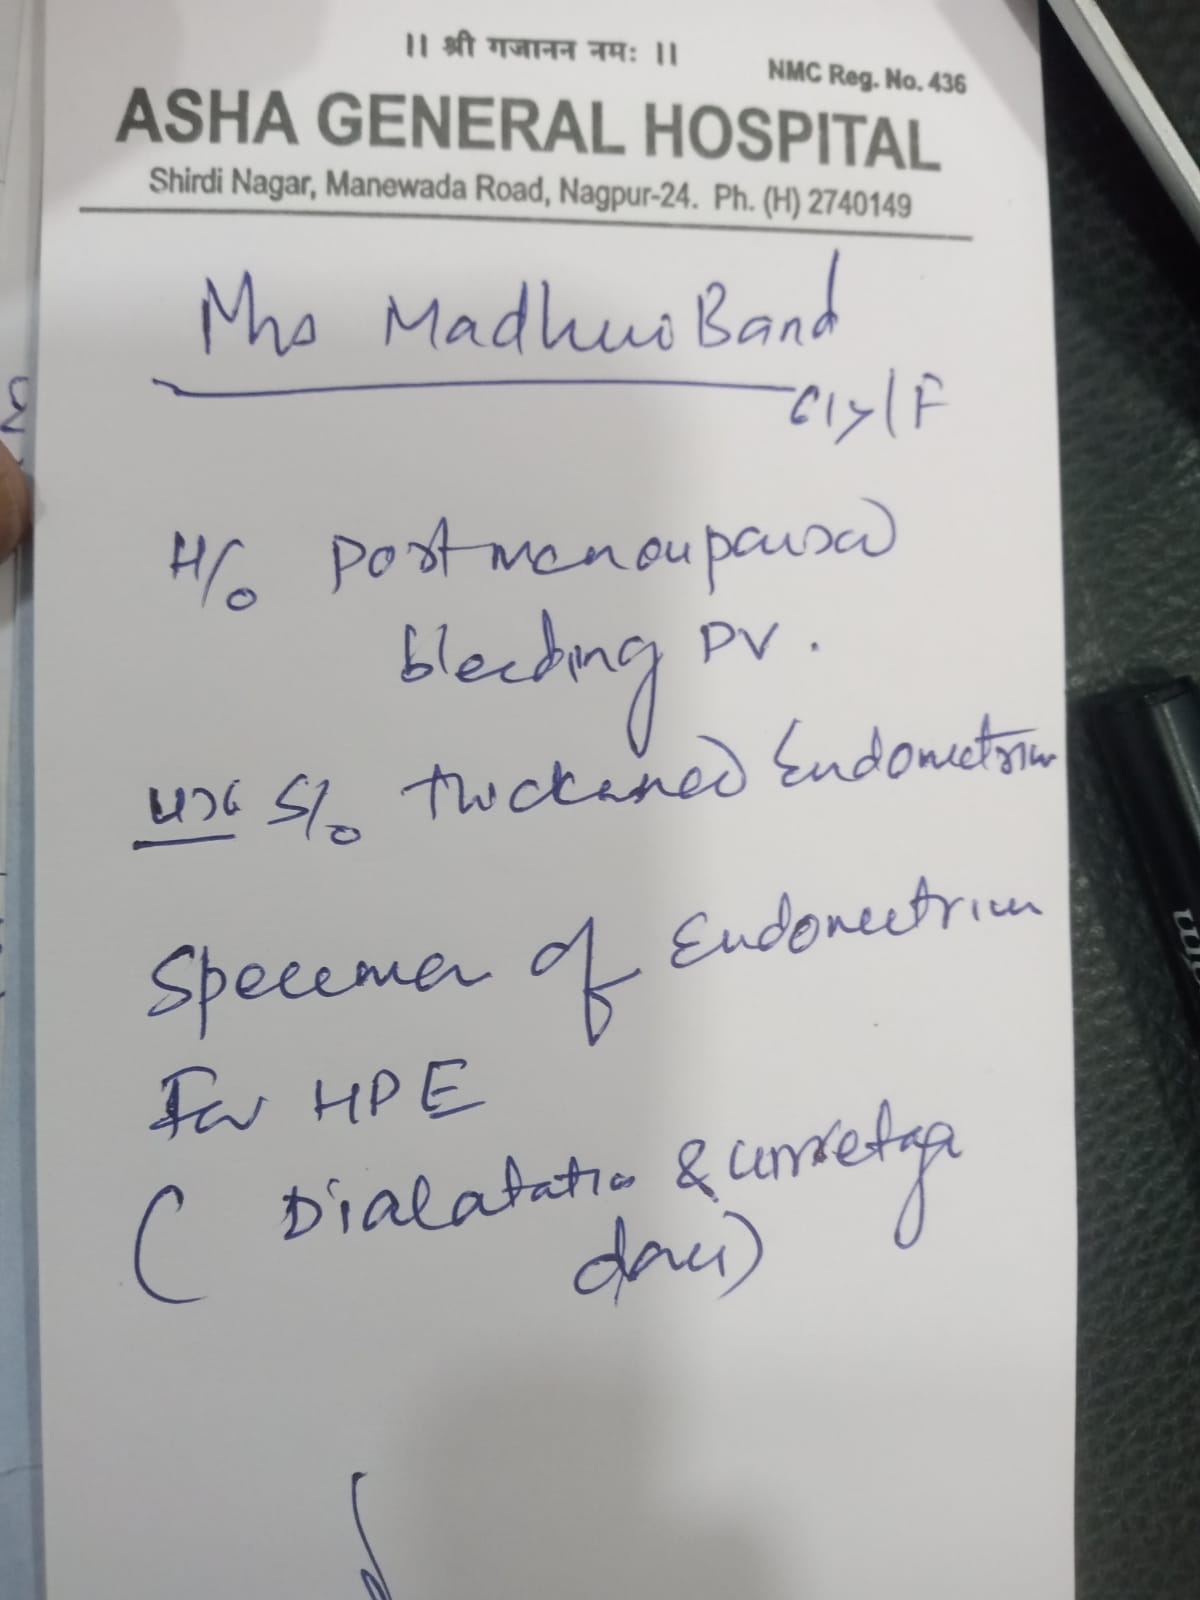 ॥ श्री गजानन नमः ॥
NMC Reg. No. 436
ASHA GENERAL HOSPITAL
Shirdi Nagar, Manewada Road, Nagpur-24. Ph. (H) 2740149
Mrs Madhuri Band
61y/F
H/o Postmenoupausal
bleeding PV.
USG S/o thickened Endometrium
Specimen of Endometrium
For HPE
( Dialatation & curretage
done)